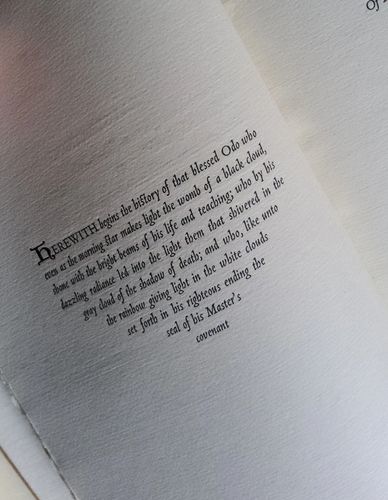 HEREWITH begins the history of that blessed Odo who
even as the morning star makes light the womb of a black cloud,
shone with the bright beams of his life and teaching; who by his
dazzling radiance led into the light them that shivered in the
gray cloud of the shadow of death; and who, like unto
the rainbow giving light in the white clouds
set forth in his righteous ending the
seal of his Master's
covenant
of